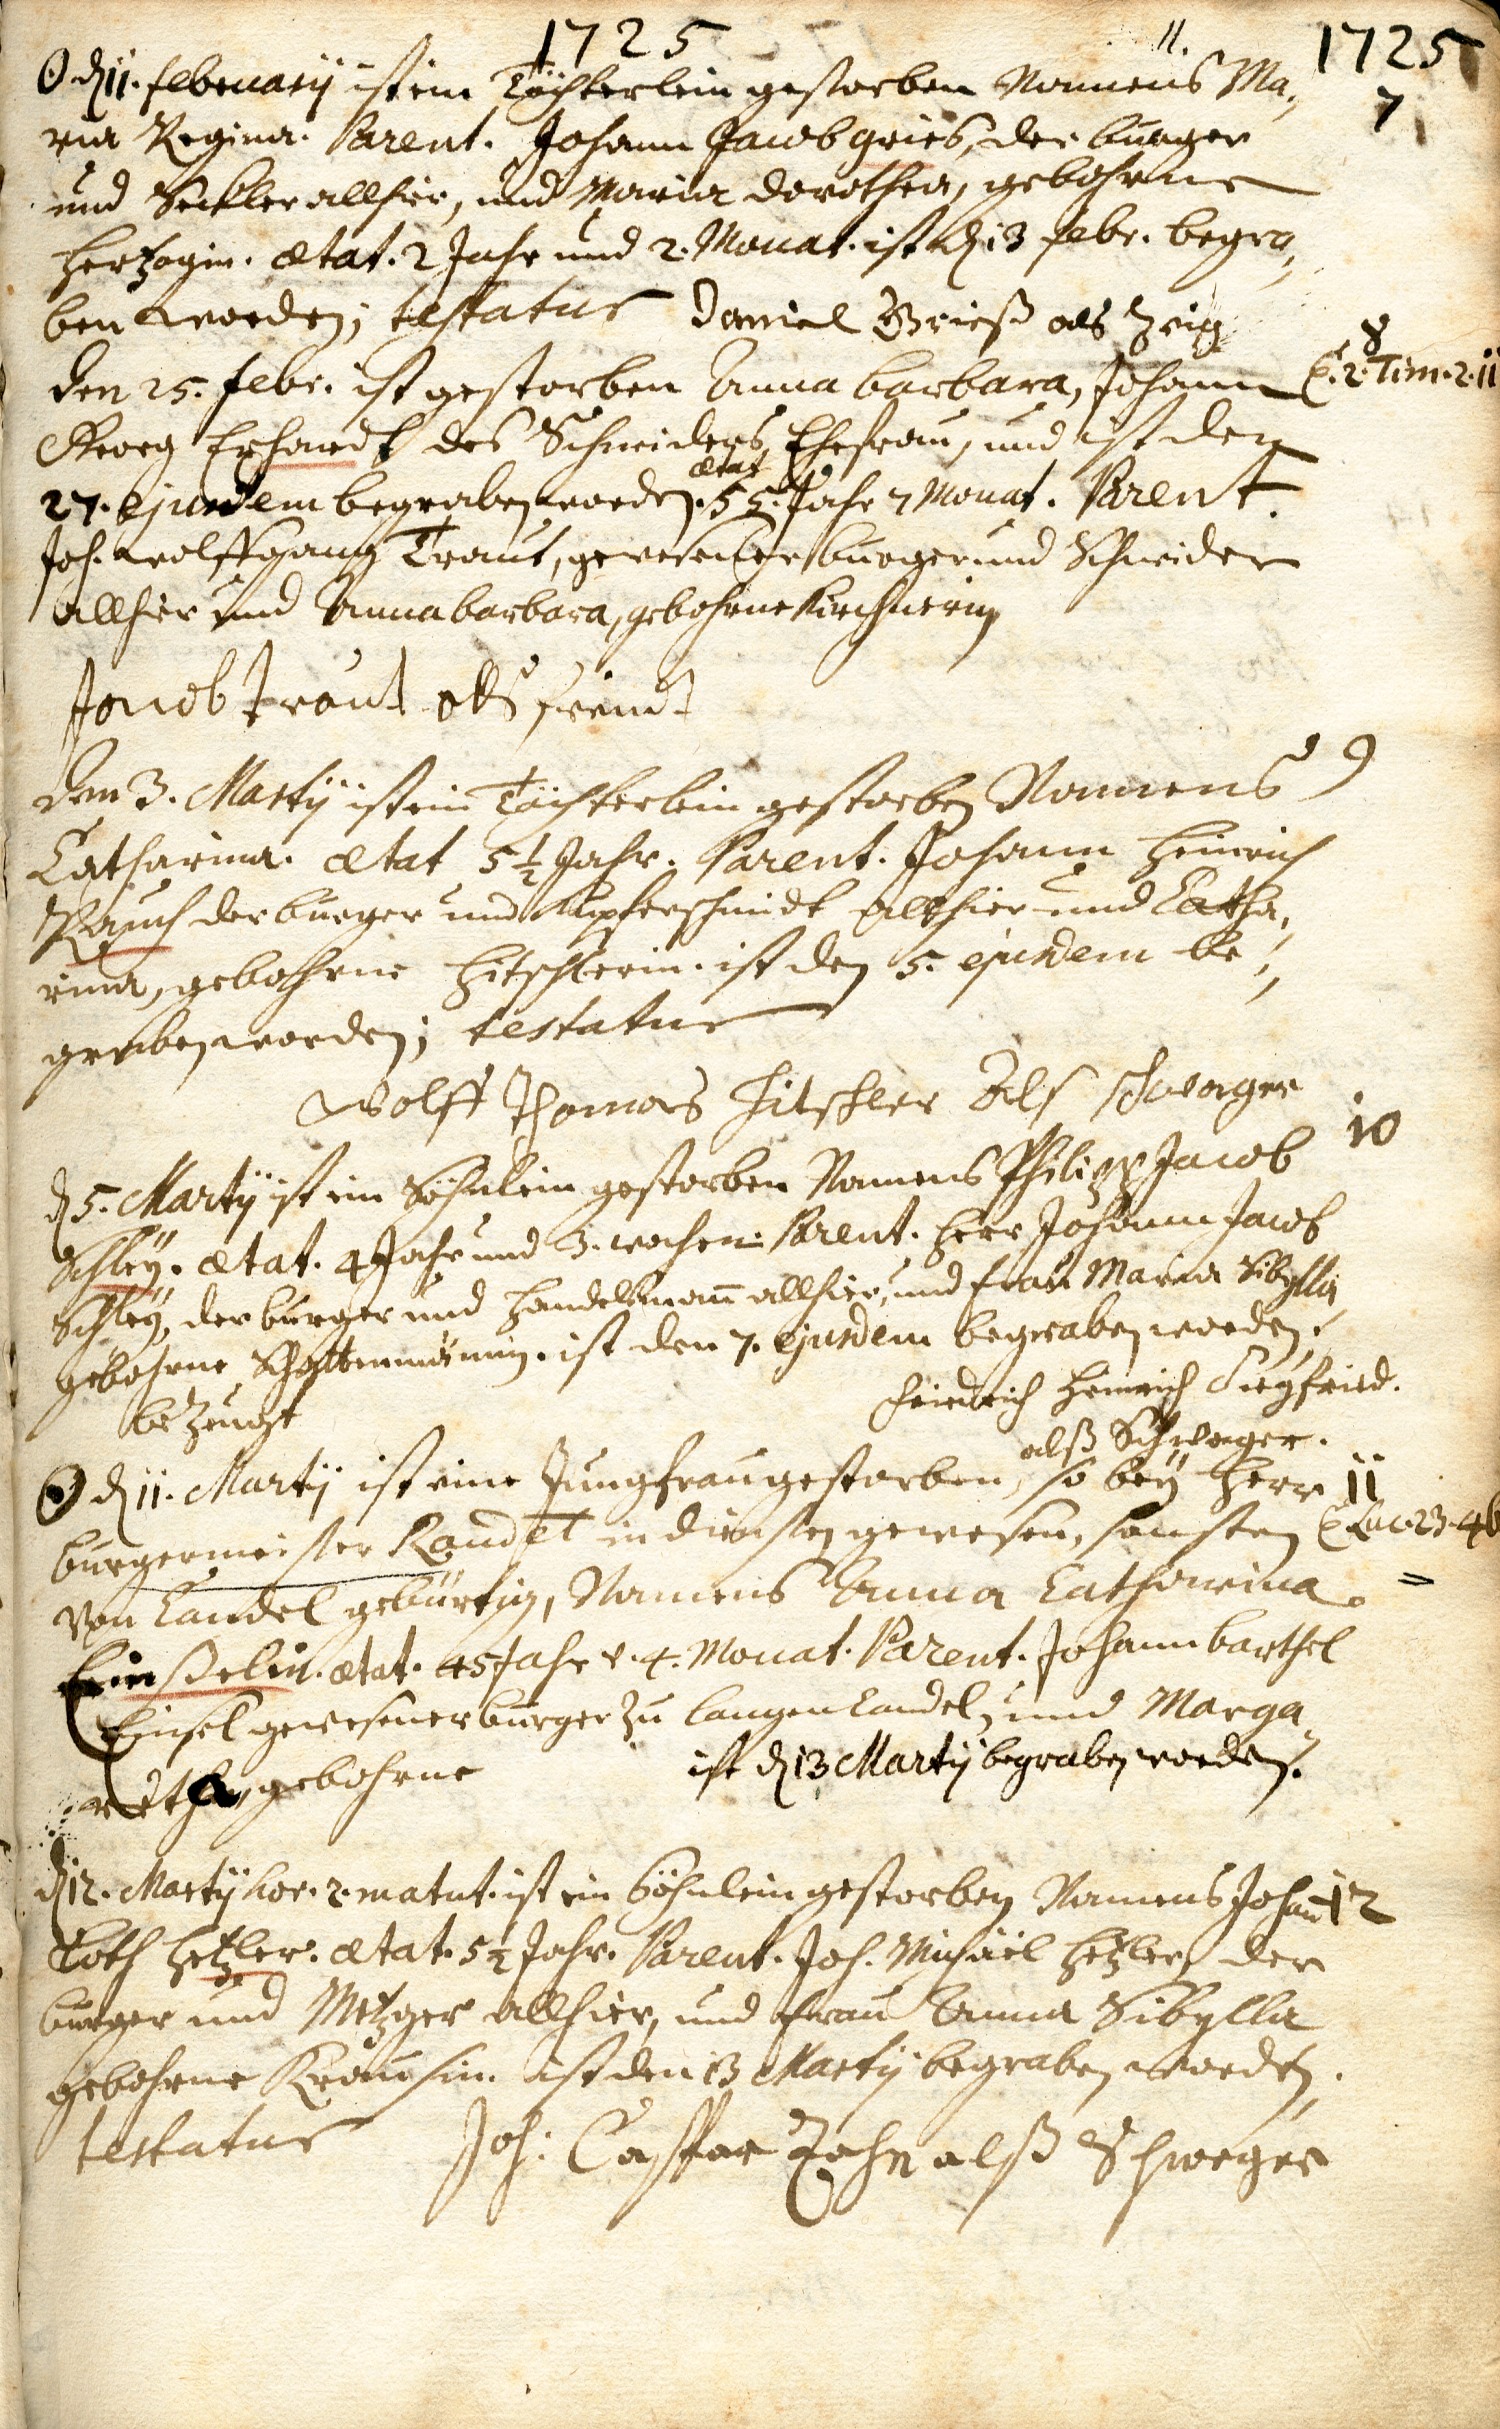 1725 11. 1725
⊙ dn 11. februarij ist ein Töchterlein gestorben Nammens Ma- 7
ria Regina. Parent. Johann Jacob Gries, der burger
und Seckler allhier, und Maria dorothea, gebohrne
Hertzogin. ætat. 2 Jahr und 2. Monat. ist dn 13 febr. begra-
ben worden; testatur Daniel Grieß als Zeüg
den 25. febr. ist gestorben Anna barbara, Johann 8
Georg Erhardt des Schneiders Ehefrau, und ist den T. 2. Tim. 2. 11
27. ejusdem begraben worden. ætat 55. Jahr 7 Monat. Parent.
Joh. wolffgang Traut, gewesener burger und Schneider
allhier und Anna barbara, gebohrne Kirchnerin
Jacob Traut als freind
den 3. Martij ist ein Töchterlein gestorben Namens 9
Catharina. ætat 5 ½ Jahr. Parent. Johann Heinrich
Rauch der burger und Kupferschmidt allhier und Catha-
rina, gebohrne Hitschlerin. ist den 5. ejusdem be-
graben worden; testatur
Wolff Thomas Hitschler Als schwager
dn 5. Martij ist ein Söhnlein gestorben Namens Philipp Jacob 10
Schleÿ. ætat. 4 Jahr und 3. wochen. Parent. Herr Johann Jacob
Schleÿ, der burger und Handelsmann allhier, und frau Maria Sibylla
gebohrne. ist den 7. ejusdem begraben worden.
bezeugt Friedrich Heinrich Siegfried.
alß Schwager.
⊙ dn 11. Martij ist eine Jungfrau gestorben, so beÿ Herr 11
burgermeister Kandel in diensten gewesen, sonsten T. Luc. 23. 46
von Candel gebürtig, Namens Anna Catharina =
Einßelin. ætat. 45 Jahr v. 4. Monat. Parent. Johann barthel
Einsel gewesener burger zu langen Candel, und Marga-
retha, gebohrne ist dn 13 Martij begraben worden.
dn 12. Martij hor. 2. matut. ist ein Söhnlein gestorben Namens Johann 12
Loth Hetzler. ætat. 5 ½ Jahr. Parent. Joh. Michäel Hetzler, der
burger und Metzger allhier, und frau Anna Sibylla
gebohrne Kraussin. ist den 13 Martij begraben worden.
testatur Joh: Casspar Zahn alß Schwager